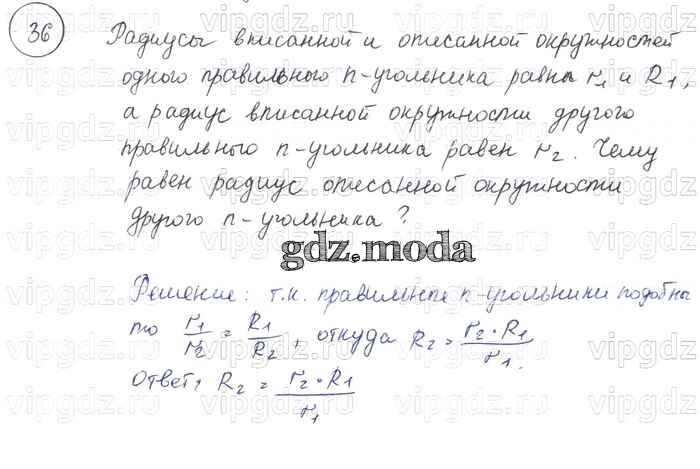 36 Радиусы вписанной и описанной окружностей
одного правильного n-угольника равны r₁ и R₁,
а радиус вписанной окружности другого
правильного n-угольника равен r₂. Чему
равен радиус описанной окружности
другого n-угольника?
gdz.moda
Решение: т.к. правильные n-угольники подобны
то r₁/r₂ = R₁/R₂, откуда R₂ = r₂·R₁/r₁.
Ответ: R₂ = r₂·R₁/r₁